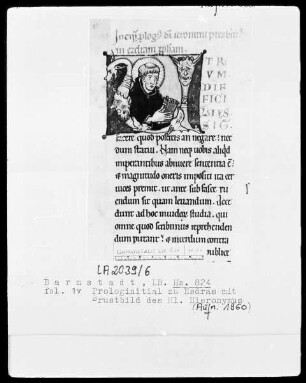 Incip̄ plog̃s sc̄i ieronimi prbiteri
in ezdram ꝓphām.
TRV
VM
DIF
FICI
LIVS
SIT
facere quod poscitis an negare: nec
dum statui. Nam neq; uobis aliqd
imperantibus abnuere sententia ē:
& magnitudo oneris impositi ita cer
uices premit. ut ante sub fasce ru
endum sit quam leuandum. Acce
dunt ad hoc inuidorum studia. qui
omne quod scribimus reprehenden
dum putant: & interdum contra
LA 2039/6
Darmstadt, LB. Hs. 824
fol. 1v Prologinitial zu Esdras mit
Brustbild des Hl. Hieronymus
(Aufn. 1960)